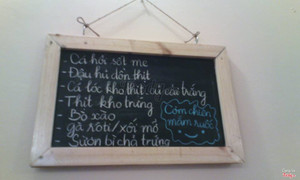 - Cá hồi sốt me
- Đậu hủ dồn thịt
- Cá lóc kho thịt. củ cải trắng
- Thịt kho trứng
- Bò xào
- gà rôti / xối mỡ
- Sườn bì chả trứng
Cơm chiên
mắm ruốc